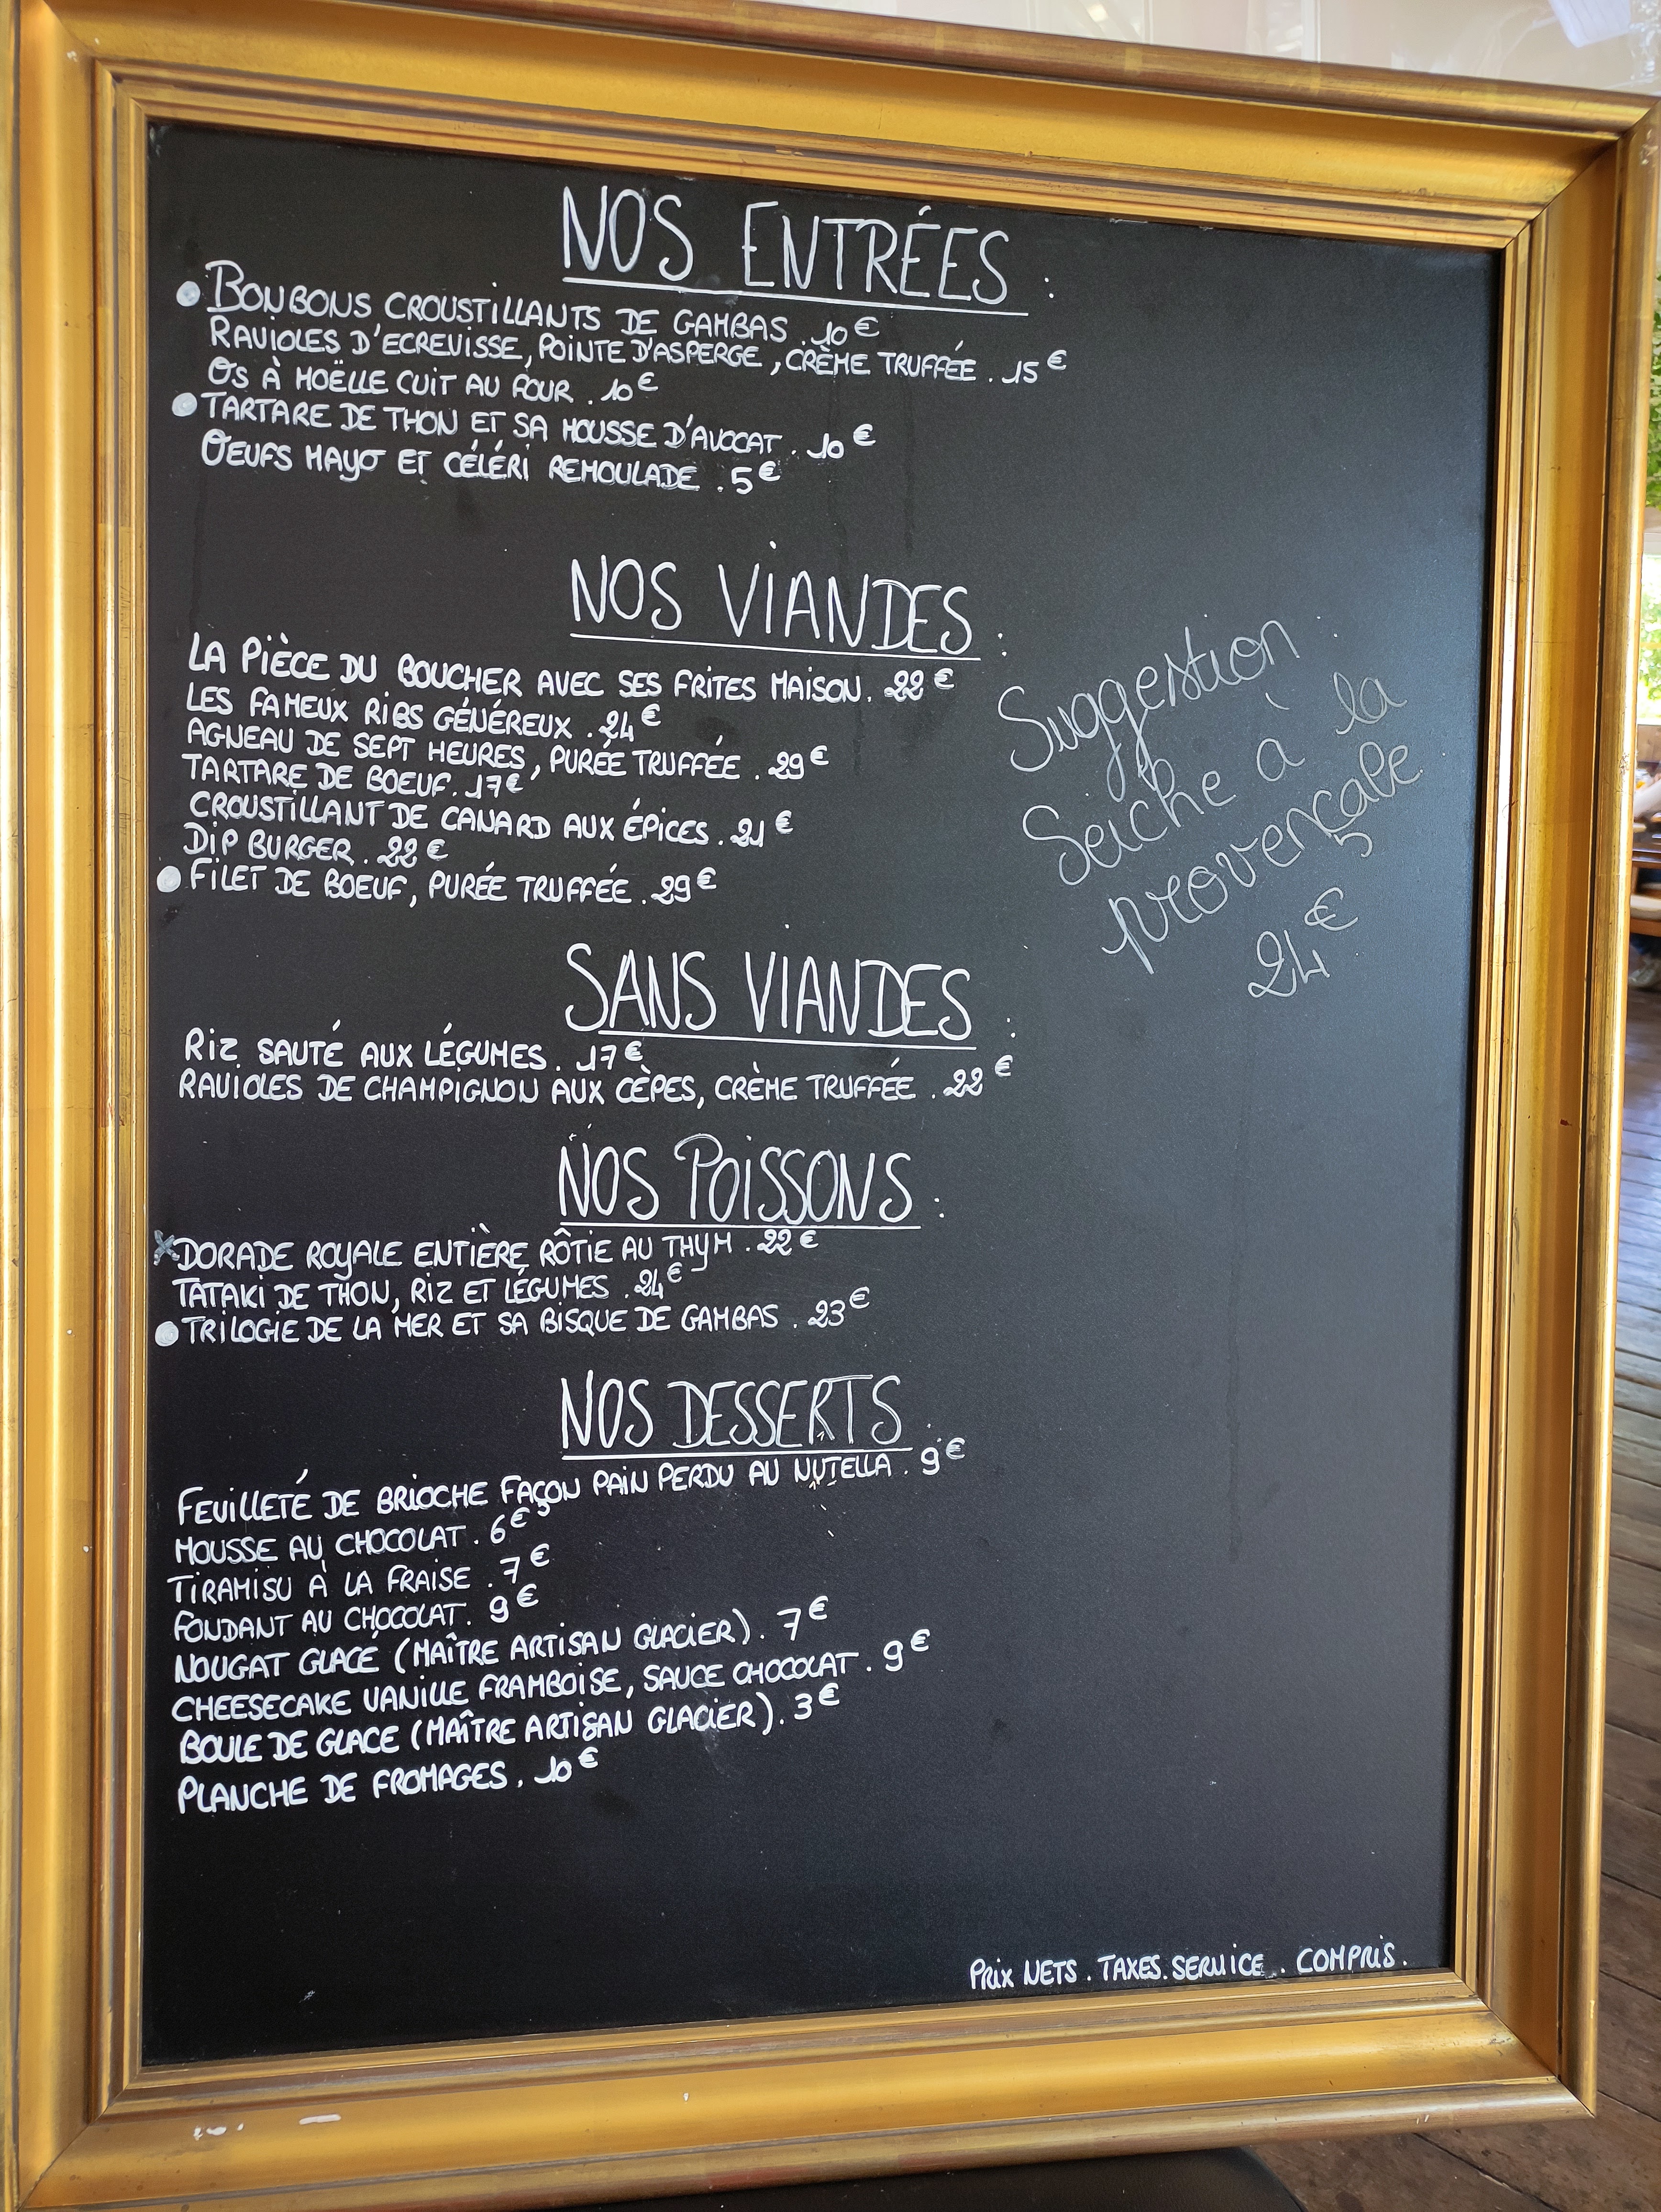 NOS ENTRÉES :
• BONBONS CROUSTILLANTS DE GAMBAS . 10 €
RAVIOLES D'ECREVISSE, POINTE D'ASPERGE, CRÈME TRUFFÉE . 15 €
OS À MOËLLE CUIT AU FOUR . 10 €
• TARTARE DE THON ET SA MOUSSE D'AVOCAT . 10 €
OEUFS MAYO ET CÉLÉRI REMOULADE . 5 €
NOS VIANDES :
LA PIÈCE DU BOUCHER AVEC SES FRITES MAISON . 22 €
LES FAMEUX RIBS GÉNÉREUX . 24 €
AGNEAU DE SEPT HEURES, PURÉE TRUFFÉE . 29 €
TARTARE DE BOEUF . 17 €
CROUSTILLANT DE CANARD AUX ÉPICES . 21 €
DIP BURGER . 22 €
• FILET DE BOEUF, PURÉE TRUFFÉE . 29 €
Suggestion :
Seiche à la
provençale
24 €
SANS VIANDES :
RIZ SAUTÉ AUX LÉGUMES . 17 €
RAVIOLES DE CHAMPIGNON AUX CÈPES, CRÈME TRUFFÉE . 22 €
NOS POISSONS :
x DORADE ROYALE ENTIÈRE RÔTIE AU THYM . 22 €
TATAKI DE THON, RIZ ET LÉGUMES . 24 €
• TRILOGIE DE LA MER ET SA BISQUE DE GAMBAS . 23 €
NOS DESSERTS :
FEUILLETÉ DE BRIOCHE FAÇON PAIN PERDU AU NUTELLA . 9 €
MOUSSE AU CHOCOLAT . 6 €
TIRAMISU À LA FRAISE . 7 €
FONDANT AU CHOCOLAT . 9 €
NOUGAT GLACÉ (MAÎTRE ARTISAN GLACIER) . 7 €
CHEESECAKE VANILLE FRAMBOISE, SAUCE CHOCOLAT . 9 €
BOULE DE GLACE (MAÎTRE ARTISAN GLACIER) . 3 €
PLANCHE DE FROMAGES . 10 €
PRIX NETS . TAXES . SERVICE . COMPRIS .